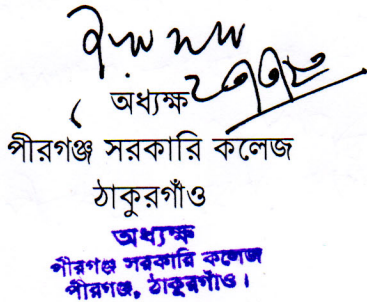 অধ্যক্ষ
পীরগঞ্জ সরকারি কলেজ
ঠাকুরগাঁও
অধ্যক্ষ
পীরগঞ্জ সরকারি কলেজ
পীরগঞ্জ, ঠাকুরগাঁও।